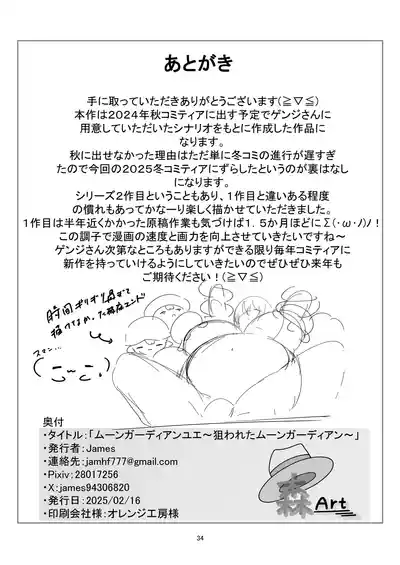 あとがき
手に取っていただきありがとうございます(≧▽≦)
本作は2024年秋コミティアに出す予定でゲンジさんに
用意していただいたシナリオをもとに作成した作品に
なります。
秋に出せなかった理由はただ単に冬コミの進行が遅すぎ
たので今回の2025冬コミティアにずらしたというのが裏はなし
になります。
シリーズ2作目ということもあり、1作目と違いある程度
の慣れもあってかなーり楽しく描かせていただきました。
1作目は半年近くかかった原稿作業も気づけば1.5か月ほどにΣ(･ω･ﾉ)ﾉ！
この調子で漫画の速度と画力を向上させていきたいですね～
ゲンジさん次第なところもありますができる限り毎年コミティアに
新作を持っていけるようにしていきたいのでぜひぜひ来年も
ご期待ください！(≧▽≦)
時間ギリギリ過ぎて
スマン…
奥付
・タイトル：「ムーンガーディアンユエ～狙われたムーンガーディアン～」
・発行者：James
・連絡先：jamhf777@gmail.com
・Pixiv：28017256
・X：james94306820
・発行日：2025/02/16
・印刷会社様：オレンジ工房様
森Art
34